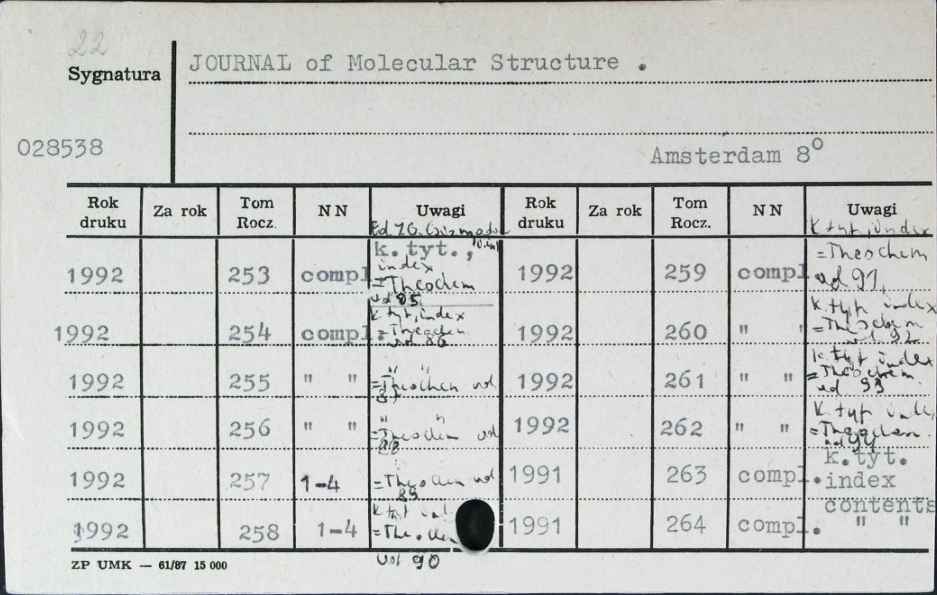 22
Sygnatura
JOURNAL of Molecular Structure .
028538
Amsterdam 8⁰
Rok druku Za rok Tom Rocz. NN Uwagi Rok druku Za rok Tom Rocz. NN Uwagi
1992 253 compl. k.tyt., index =Theochem vol 85 1992 259 compl. k tyt, index =Theochem vol 91,
1992 254 compl. k tyt, index =Theochem vol 86 1992 260 " " k tyt index =Theochem vol 92
1992 255 " " " " =Theochem vol 87 1992 261 " " k tyt index =Theochem vol 93
1992 256 " " " " =Theochem vol 88 1992 262 " " k tyt =Theochem vol 94
1992 257 1-4 =Theochem vol 89 1991 263 compl. k.tyt. index contents
1992 258 1-4 k tyt vol 90 1991 264 compl. " "
ZP UMK — 61/87 15 000